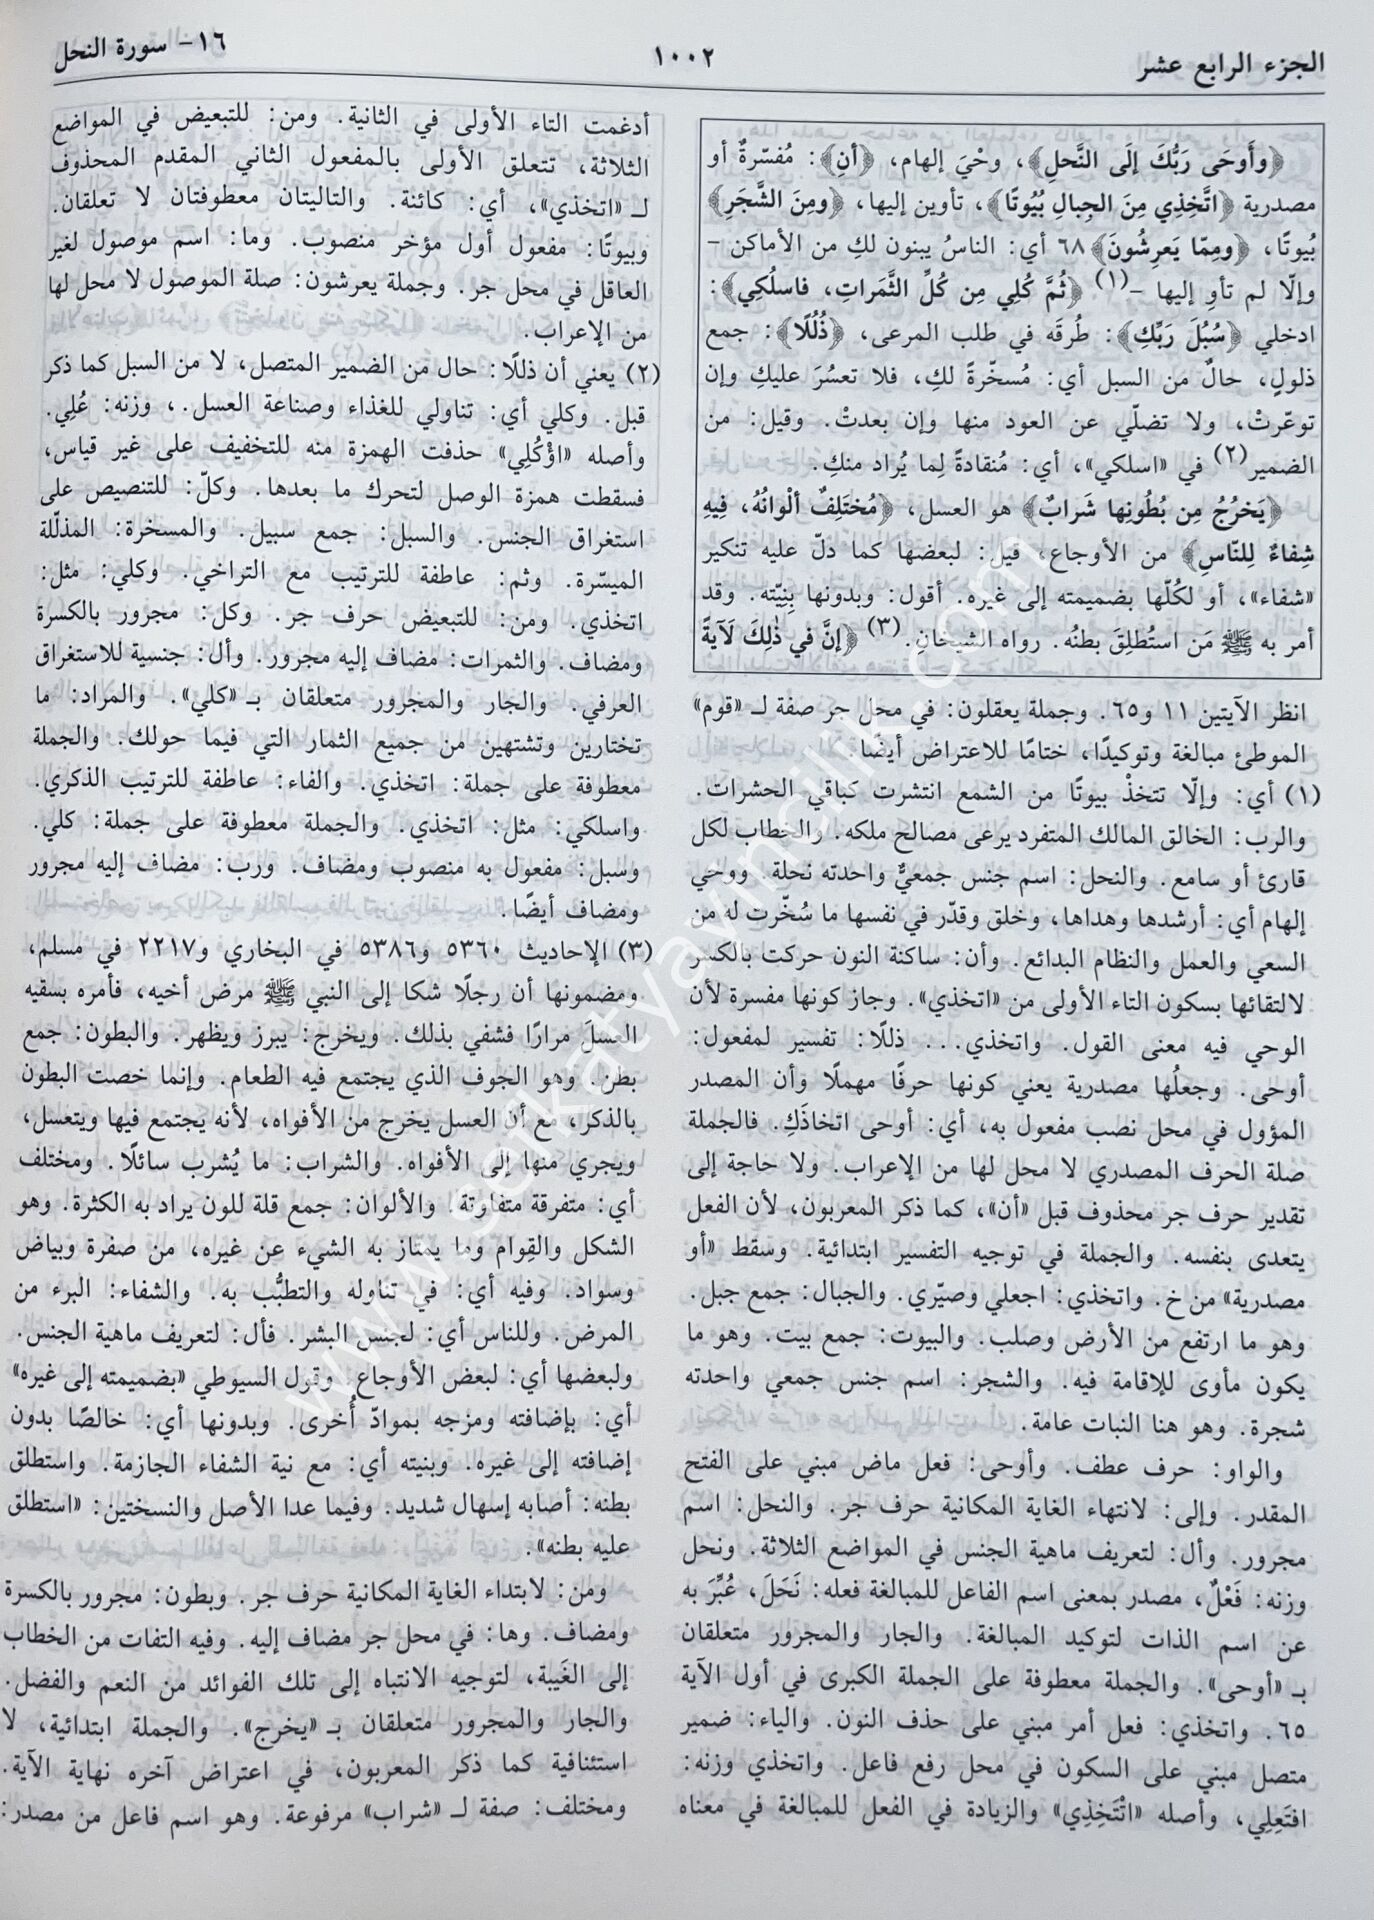 الجزء الرابع عشر
١٠٠٢
١٦- سورة النحل
﴿وأَوحَى رَبُّكَ إلَى النَّحلِ﴾، وحْيَ إلهام، ﴿أنِ﴾: مُفسّرةٌ أو
مصدرية ﴿اتَّخِذِي مِنَ الجِبالِ بُيُوتًا﴾، تأوين إليها، ﴿ومِنَ الشَّجَرِ﴾
بُيوتًا، ﴿ومِمّا يَعرِشُونَ﴾ ٦٨ أي: الناسُ يبنون لكِ من الأماكن –
وإلّا لم تأوِ إليها –(١). ﴿ثُمَّ كُلِي مِن كُلِّ الثَّمَراتِ، فاسلُكِي﴾:
ادخلي ﴿سُبُلَ رَبِّكِ﴾: طُرقَه في طلب المرعى، ﴿ذُلُلًا﴾: جمع
ذلولٍ، حالٌ من السبل أي: مُسخّرةً لكِ، فلا تعسُرَ عليكِ وإن
توعّرتْ، ولا تضلّي عن العود منها وإن بعدتْ. وقيل: من
الضمير(٢) في «اسلكي»، أي: مُنقادةً لِما يُراد منكِ.
﴿يَخرُجُ مِن بُطُونِها شَرابٌ﴾ هو العسل، ﴿مُختَلِفٌ ألْوانُهُ، فِيهِ
شِفاءٌ لِلنّاسِ﴾ من الأوجاع، قيل: لبعضها كما دلّ عليه تنكير
«شفاء»، أو لكُلّها بضميمته إلى غيره. أقول: وبدونها بِنِيّته. وقد
أمر به ﷺ مَن استُطلِقَ بطنُه. رواه الشيخانِ.(٣) ﴿إنَّ في ذٰلِكَ لَآيةً
انظر الآيتين ١١ و٦٥. وجملة يعقلون: في محل جر صفة لـ «قوم»
الموطئ مبالغة وتوكيدًا، ختامًا للاعتراض أيضًا.
(١) أي: وإلّا تتخذْ بيوتًا من الشمع انتشرت كباقي الحشرات.
والرب: الخالق المالك المتفرد يرعى مصالح ملكه. والخطاب لكل
قارئ أو سامع. والنحل: اسم جنس جمعيٌّ واحدته نحلة. ووحي
إلهام أي: أرشدها وهداها، وخلق وقدّر في نفسها ما سُخّرت له من
السعي والعمل والنظام البدائع. وأن: ساكنة النون حركت بالكسر
لالتقائها بسكون التاء الأولى من «اتخذي». وجاز كونها مفسرة لأن
الوحي فيه معنى القول. واتخذي... ذللا: تفسير لمفعول:
أوحى. وجعلُها مصدرية يعني كونها حرفًا مهملًا وأن المصدر
المؤول في محل نصب مفعول به، أي: أوحى اتخاذَكِ. فالجملة
صلة الحرف المصدري لا محل لها من الإعراب. ولا حاجة إلى
تقدير حرف جر محذوف قبل «أن»، كما ذكر المعربون، لأن الفعل
يتعدى بنفسه. والجملة في توجيه التفسير ابتدائية. وسقط «أو
مصدرية» من خ. واتخذي: اجعلي وصيّري. والجبال: جمع جبل.
وهو ما ارتفع من الأرض وصلب. والبيوت: جمع بيت. وهو ما
يكون مأوى للإقامة فيه. والشجر: اسم جنس جمعي واحدته
شجرة. وهو هنا النبات عامة.
والواو: حرف عطف. وأوحى: فعل ماض مبني على الفتح
المقدر. وإلى: لانتهاء الغاية المكانية حرف جر. والنحل: اسم
مجرور. وأل: لتعريف ماهية الجنس في المواضع الثلاثة. ونحل
وزنه: فَعْلٌ، مصدر بمعنى اسم الفاعل للمبالغة فعله: نَحَلَ، عُبِّرَ به
عن اسم الذات لتوكيد المبالغة. والجار والمجرور متعلقان
بـ «أوحى». والجملة معطوفة على الجملة الكبرى في أول الآية
٦٥. واتخذي: فعل أمر مبني على حذف النون. والياء: ضمير
متصل مبني على السكون في محل رفع فاعل. واتخذي وزنه:
افتَعِلِي، وأصله «اتْتَخِذِي» والزيادة في الفعل للمبالغة في معناه
أدغمت التاء الأولى في الثانية. ومن: للتبعيض في المواضع
الثلاثة، تتعلق الأولى بالمفعول الثاني المقدم المحذوف
لـ «اتخذي»، أي: كائنة. والتاليتان معطوفتان لا تعلقان.
وبيوتًا: مفعول أول مؤخر منصوب. وما: اسم موصول لغير
العاقل في محل جر. وجملة يعرشون: صلة الموصول لا محل لها
من الإعراب.
(٢) يعني أن ذللًا: حال من الضمير المتصل، لا من السبل كما ذكر
قبل. وكلي أي: تناولي للغذاء وصناعة العسل.، وزنه: عُلِي.
وأصله «اؤْكُلِي» حذفت الهمزة منه للتخفيف على غير قياس،
فسقطت همزة الوصل لتحرك ما بعدها. وكلّ: للتنصيص على
استغراق الجنس. والسبل: جمع سبيل. والمسخرة: المذلّلة
الميسّرة. وثم: عاطفة للترتيب مع التراخي. وكلي: مثل:
اتخذي. ومن: للتبعيض حرف جر. وكل: مجرور بالكسرة
ومضاف. والثمرات: مضاف إليه مجرور. وأل: جنسية للاستغراق
العرفي. والجار والمجرور متعلقان بـ «كلي». والمراد: ما
تختارين وتشتهين من جميع الثمار التي فيما حولك. والجملة
معطوفة على جملة: اتخذي. والفاء: عاطفة للترتيب الذكري.
واسلكي: مثل: اتخذي. والجملة معطوفة على جملة: كلي.
وسبل: مفعول به منصوب ومضاف. ورب: مضاف إليه مجرور
ومضاف أيضًا.
(٣) الإحاديث ٥٣٦٠ و٥٣٨٦ في البخاري و٢٢١٧ في مسلم،
ومضمونها أن رجلًا شكا إلى النبي ﷺ مرض أخيه، فأمره بسقيه
العسلَ مرارًا فشفي بذلك. ويخرج: يبرز ويظهر. والبطون: جمع
بطن. وهو الجوف الذي يجتمع فيه الطعام. وإنما خصت البطون
بالذكر، مع أن العسل يخرج من الأفواه، لأنه يجتمع فيها ويتعسل،
ويجري منها إلى الأفواه. والشراب: ما يُشرب سائلًا. ومختلف
أي: متفرقة متفاوتة. والألوان: جمع قلة للون يراد به الكثرة. وهو
الشكل والقِوام وما يمتاز به الشيء عن غيره، من صفرة وبياض
وسواد. وفيه أي: في تناوله والتطبُّب به. والشفاء: البرء من
المرض. وللناس أي: لجنس البشر. فأل: لتعريف ماهية الجنس.
ولبعضها أي: لبعض الأوجاع. وقول السيوطي «بضميمته إلى غيره»
أي: بإضافته ومزجه بموادّ أُخرى. وبدونها أي: خالصًا بدون
إضافته إلى غيره. وبنيته أي: مع نية الشفاء الجازمة. واستطلق
بطنه: أصابه إسهال شديد. وفيما عدا الأصل والنسختين: «استطلق
عليه بطنه».
ومن: لابتداء الغاية المكانية حرف جر. وبطون: مجرور بالكسرة
ومضاف. وها: في محل جر مضاف إليه. وفيه التفات من الخطاب
إلى الغَيبة، لتوجيه الانتباه إلى تلك الفوائد من النعم والفضل.
والجار والمجرور متعلقان بـ «يخرج». والجملة ابتدائية، لا
استئنافية كما ذكر المعربون، في اعتراض آخره نهاية الآية.
ومختلف: صفة لـ «شراب» مرفوعة. وهو اسم فاعل من مصدر:
www.serkatyayincilik.com